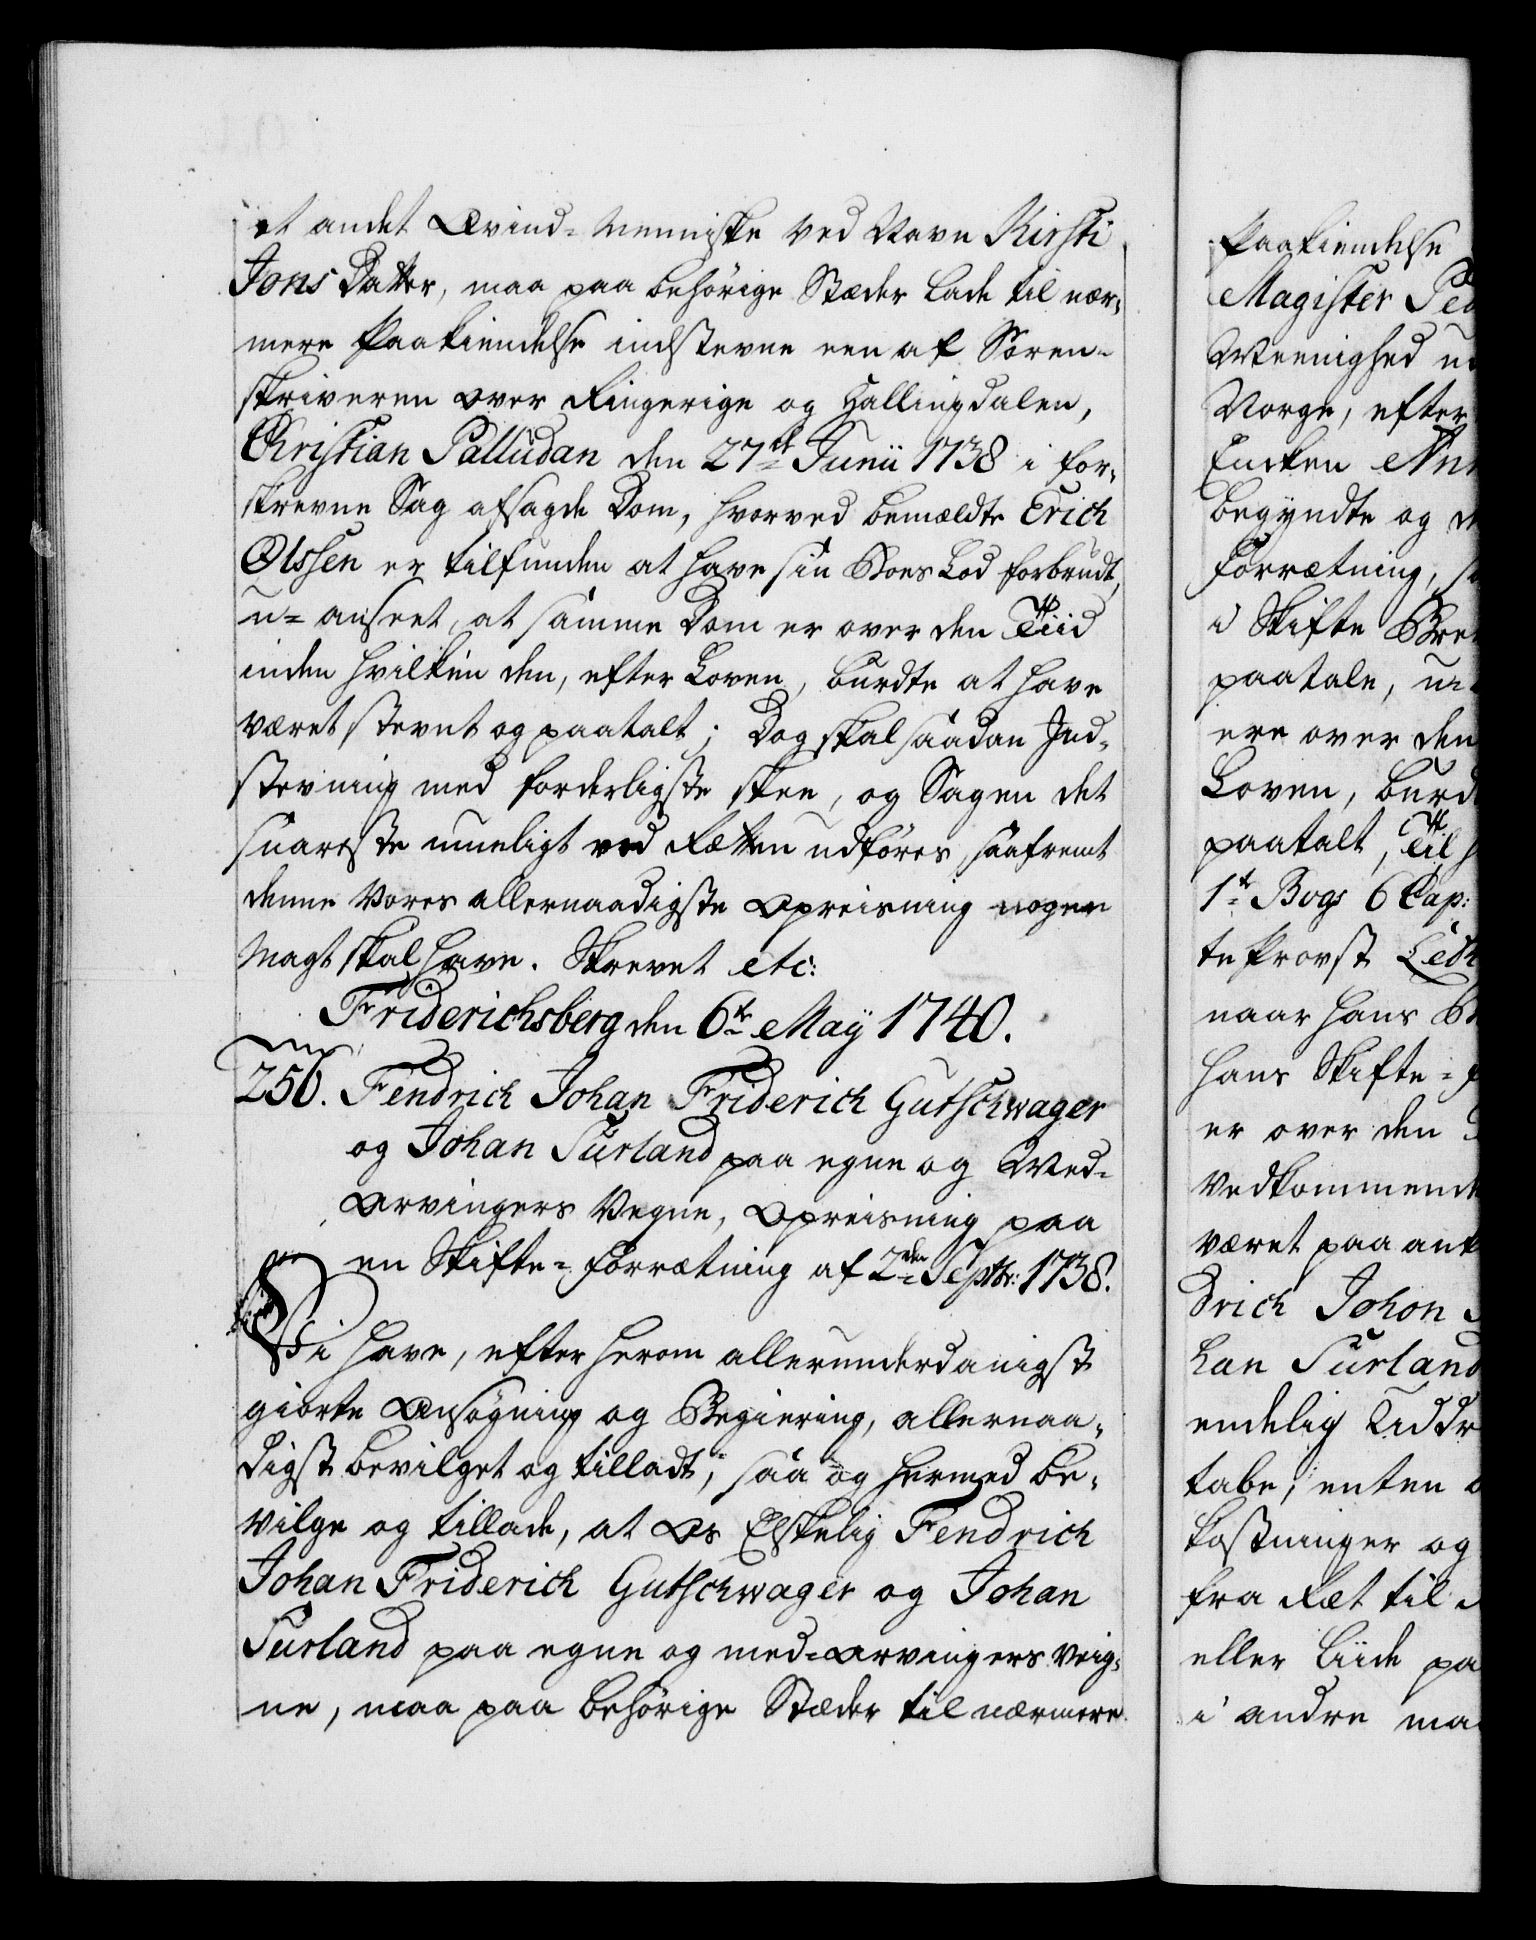 et andet Qvind-Menniske ved Navn Kirsti
Jons Datter, maa paa behörige Stæder lade til nær-
mere Paakiendelse indstevne een af Soren-
skriveren over Ringerige og Hallingdalen,
Christian Palludan den 27de Junii 1738 i for-
skrevne Sag afsagde Dom, hvorved bemældte Erich
Olssen er tilfunden at have sin Boes Lod forbrudt,
u-anseet, at samme Dom er over den Tiid
inden hvilken den, efter Loven, burdte at have
været stevnt og paatalt; Dog skal saadan Ind-
stevning med forderligste skee, og Sagen det
snareste mueligt ved Retten udföres, saafremt
denne Vores allernaadigste Opreisning nogen
Magt skal have. Skrevet etc:
Friderichsberg den 6te May 1740.
256. Fendrich Johan Friderich Gutschwager
og Johan Surland paa egne og Med-
Arvingers Vegne, Opreisning paa
en Skifte-Forretning af 2den Septbr: 1738.
Vi have, efter herom allerunderdanigst
giorte Ansögning og Begiering, allernaa-
digst bevilget og tilladt, saa og hermed be-
vilge og tillade, at Os Elskelig Fendrich
Johan Friderich Gutschwager og Johan
Surland paa egne og med-Arvingers veig-
ne, maa paa behörige Stæder til nærmere
Paakiendelse
Magister Ped
Meenighed u
Norge, efter
Encken Ann
begyndte og
Forretning, s
i Skifte Bre
paatale, u
ere over den
Loven, burd
paatalt, Til
1te Bogs 6 Cap:
te Provst
naar hans
hans Skifte-
er over den
Vedkommende
været paa ank
drich Johan
han Surland
endelig
tabe, enten
kostninger og
fra Ret til
eller liide pa
i andre maa